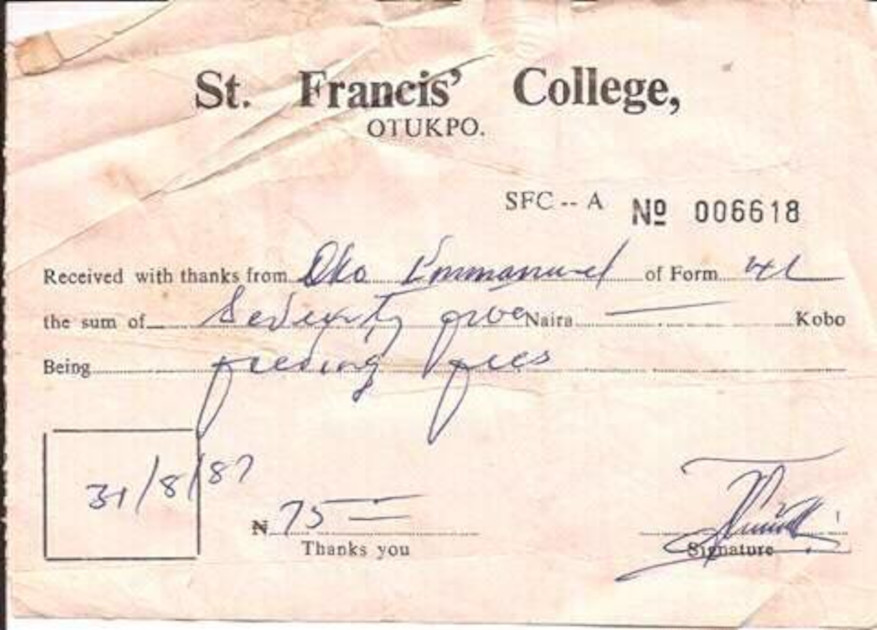 St. Francis' College,
OTUKPO.
SFC -- A № 006618
Received with thanks from Oko Emmanuel of Form 4L
the sum of Seventy five Naira — Kobo
Being feeding fees
31/8/87
₦ 75 =
Thanks you
Signature